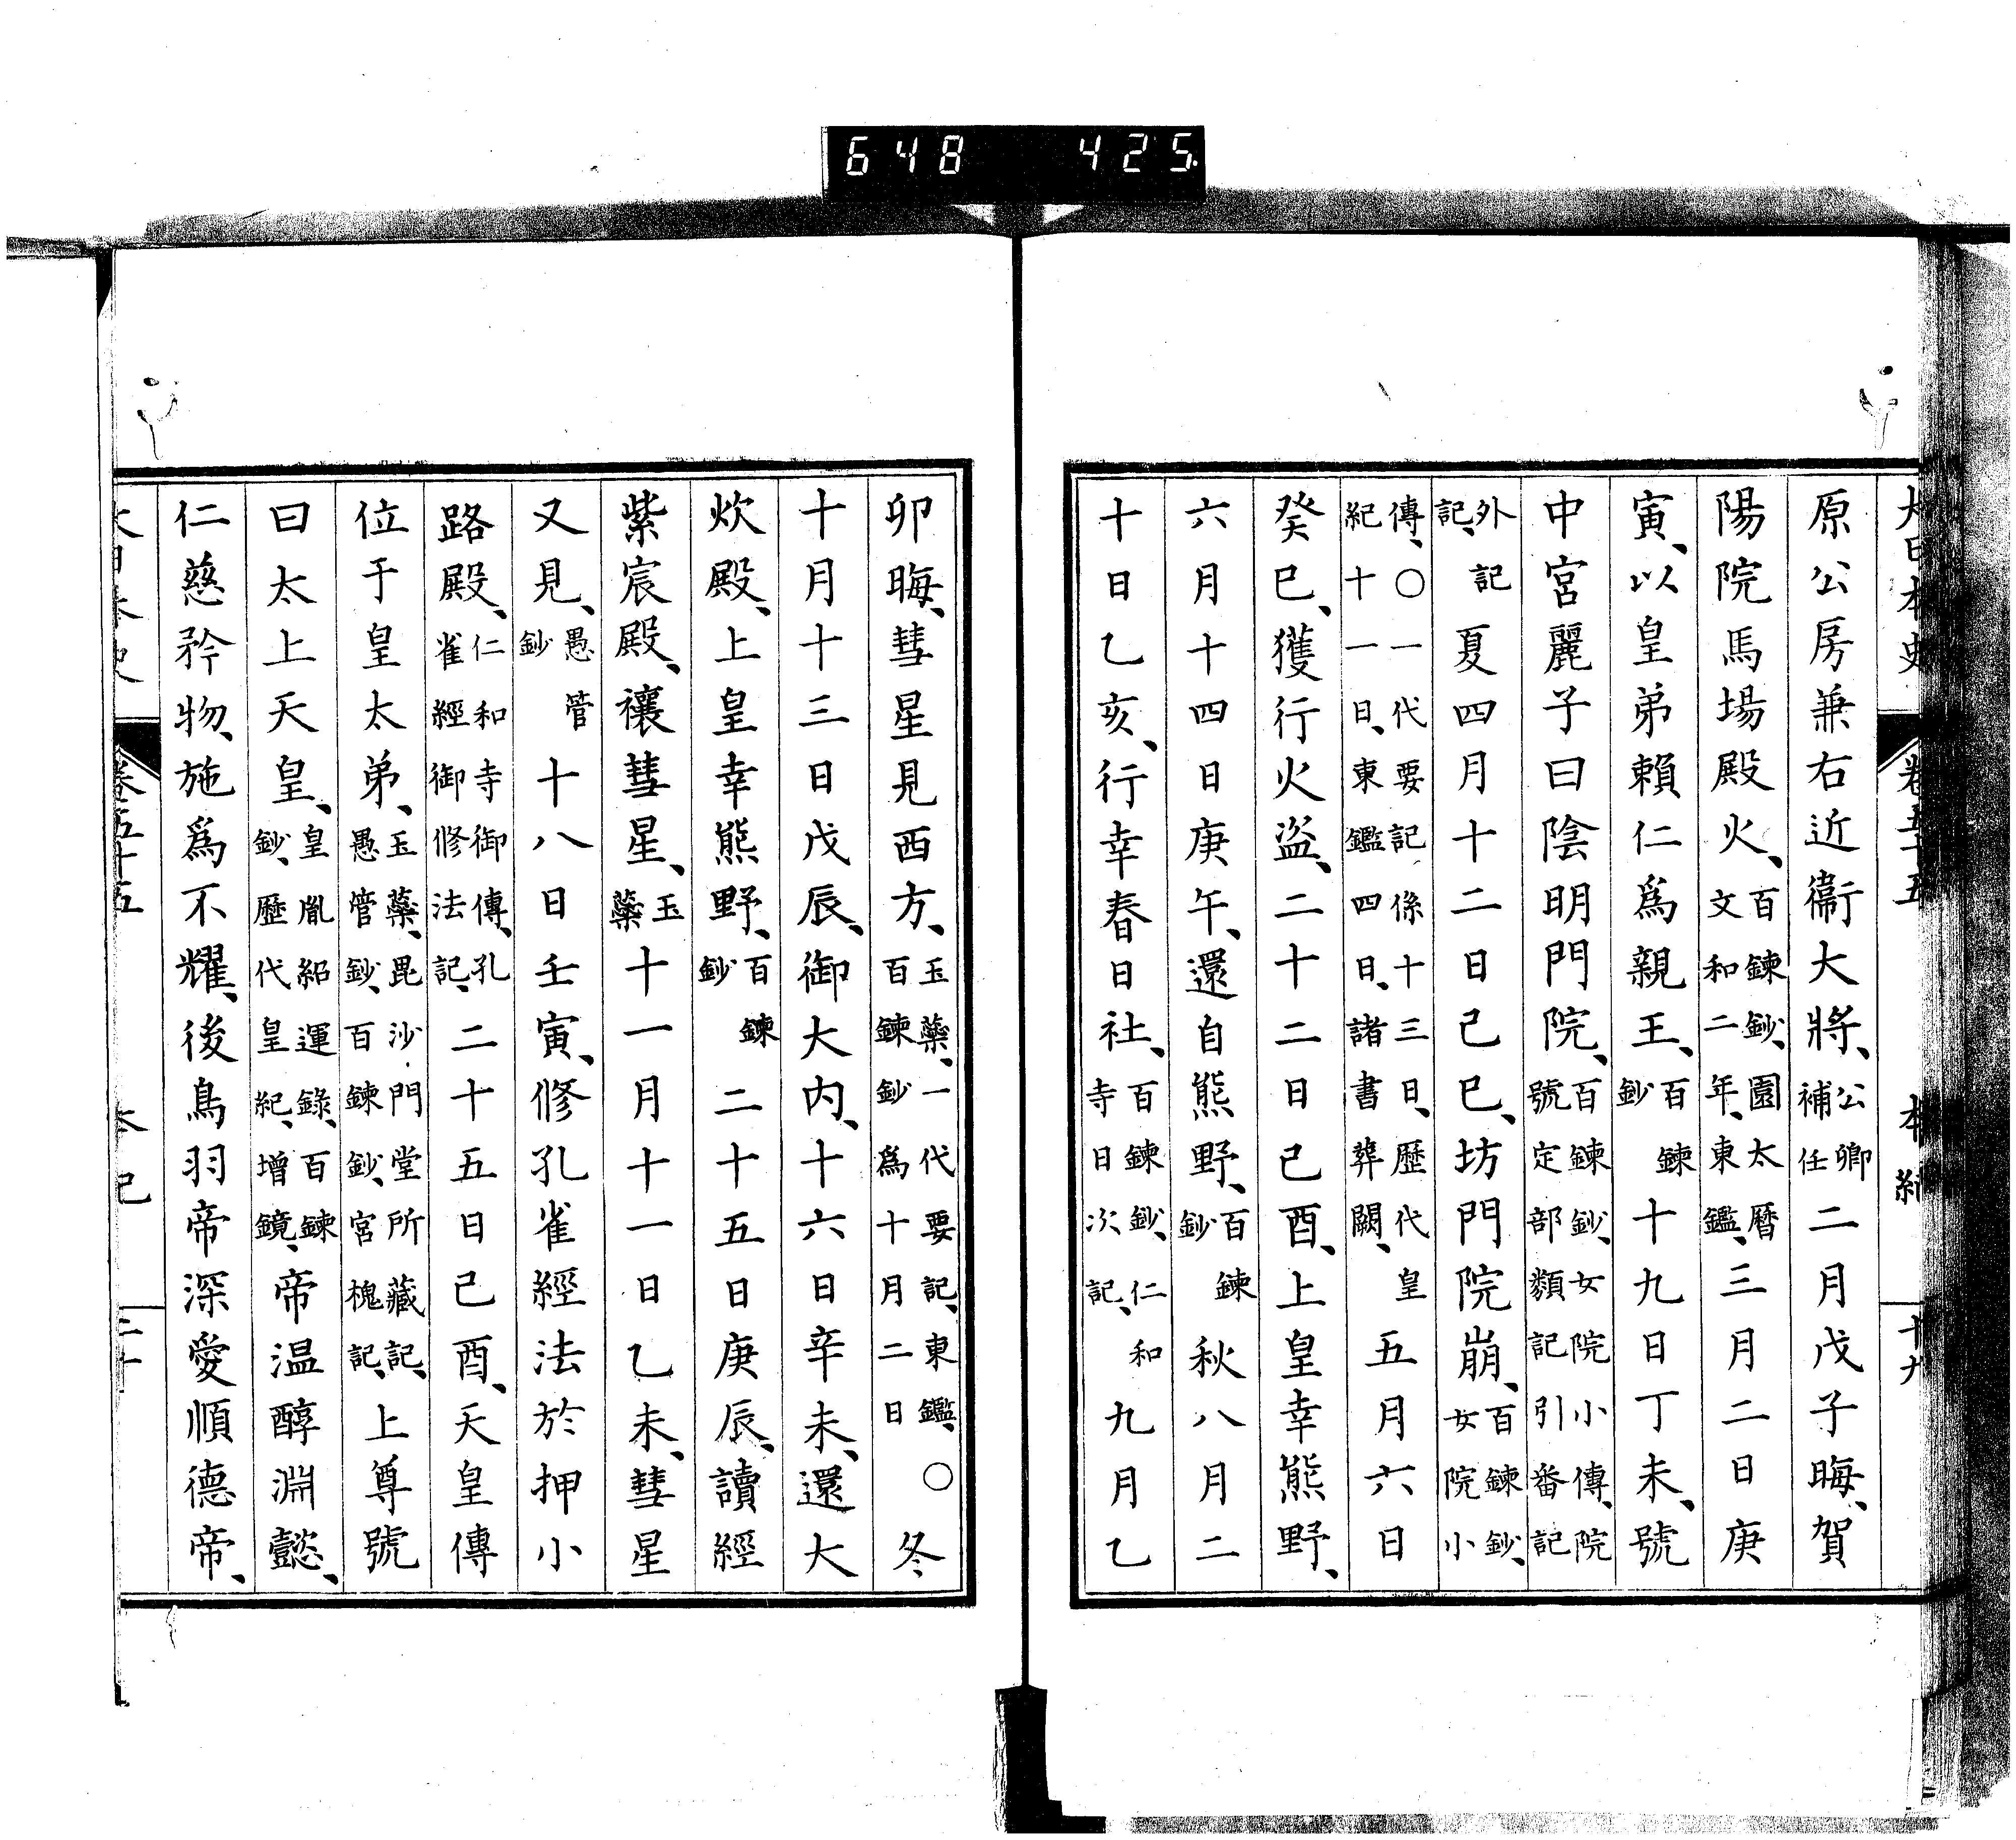 648 425
大日本史 卷五十五 本紀 十九
原公房兼右近衞大將、公卿補任二月戊子晦、賀
陽院馬場殿火、百鍊鈔、園太曆文和二年、東鑑、三月二日庚
寅、以皇弟賴仁爲親王、百鍊鈔十九日丁未、號
中宮麗子曰陰明門院、百鍊鈔、女院小傳、院號定部類記引番記
外記記、夏四月十二日己巳、坊門院崩、百鍊鈔、女院小
傳、〇一代要記係十三日、歷代皇紀十一日、東鑑四日、諸書葬闕、五月六日
癸巳、獲行火盜、二十二日己酉、上皇幸熊野、
六月十四日庚午、還自熊野、百鍊鈔秋八月二
十日乙亥、行幸春日社、百鍊鈔、仁和寺日次記、九月乙
卯晦、彗星見西方、玉蘂、一代要記、東鑑、〇百鍊鈔爲十月二日冬
十月十三日戊辰、御大內、十六日辛未、還大
炊殿、上皇幸熊野、百鍊鈔二十五日庚辰、讀經
紫宸殿、禳彗星、玉蘂十一月十一日乙未、彗星
又見、愚管鈔十八日壬寅、修孔雀經法於押小
路殿、仁和寺御傳、孔雀經御修法記、二十五日己酉、天皇傳
位于皇太弟、玉蘂、毘沙門堂所藏記、愚管鈔、百鍊鈔、宮槐記、上尊號
曰太上天皇、皇胤紹運錄、百鍊鈔、歷代皇紀、增鏡、帝温醇淵懿、
仁慈矜物、施爲不耀、後鳥羽帝深愛順德帝、
大日本史 卷五十五 本紀 二十